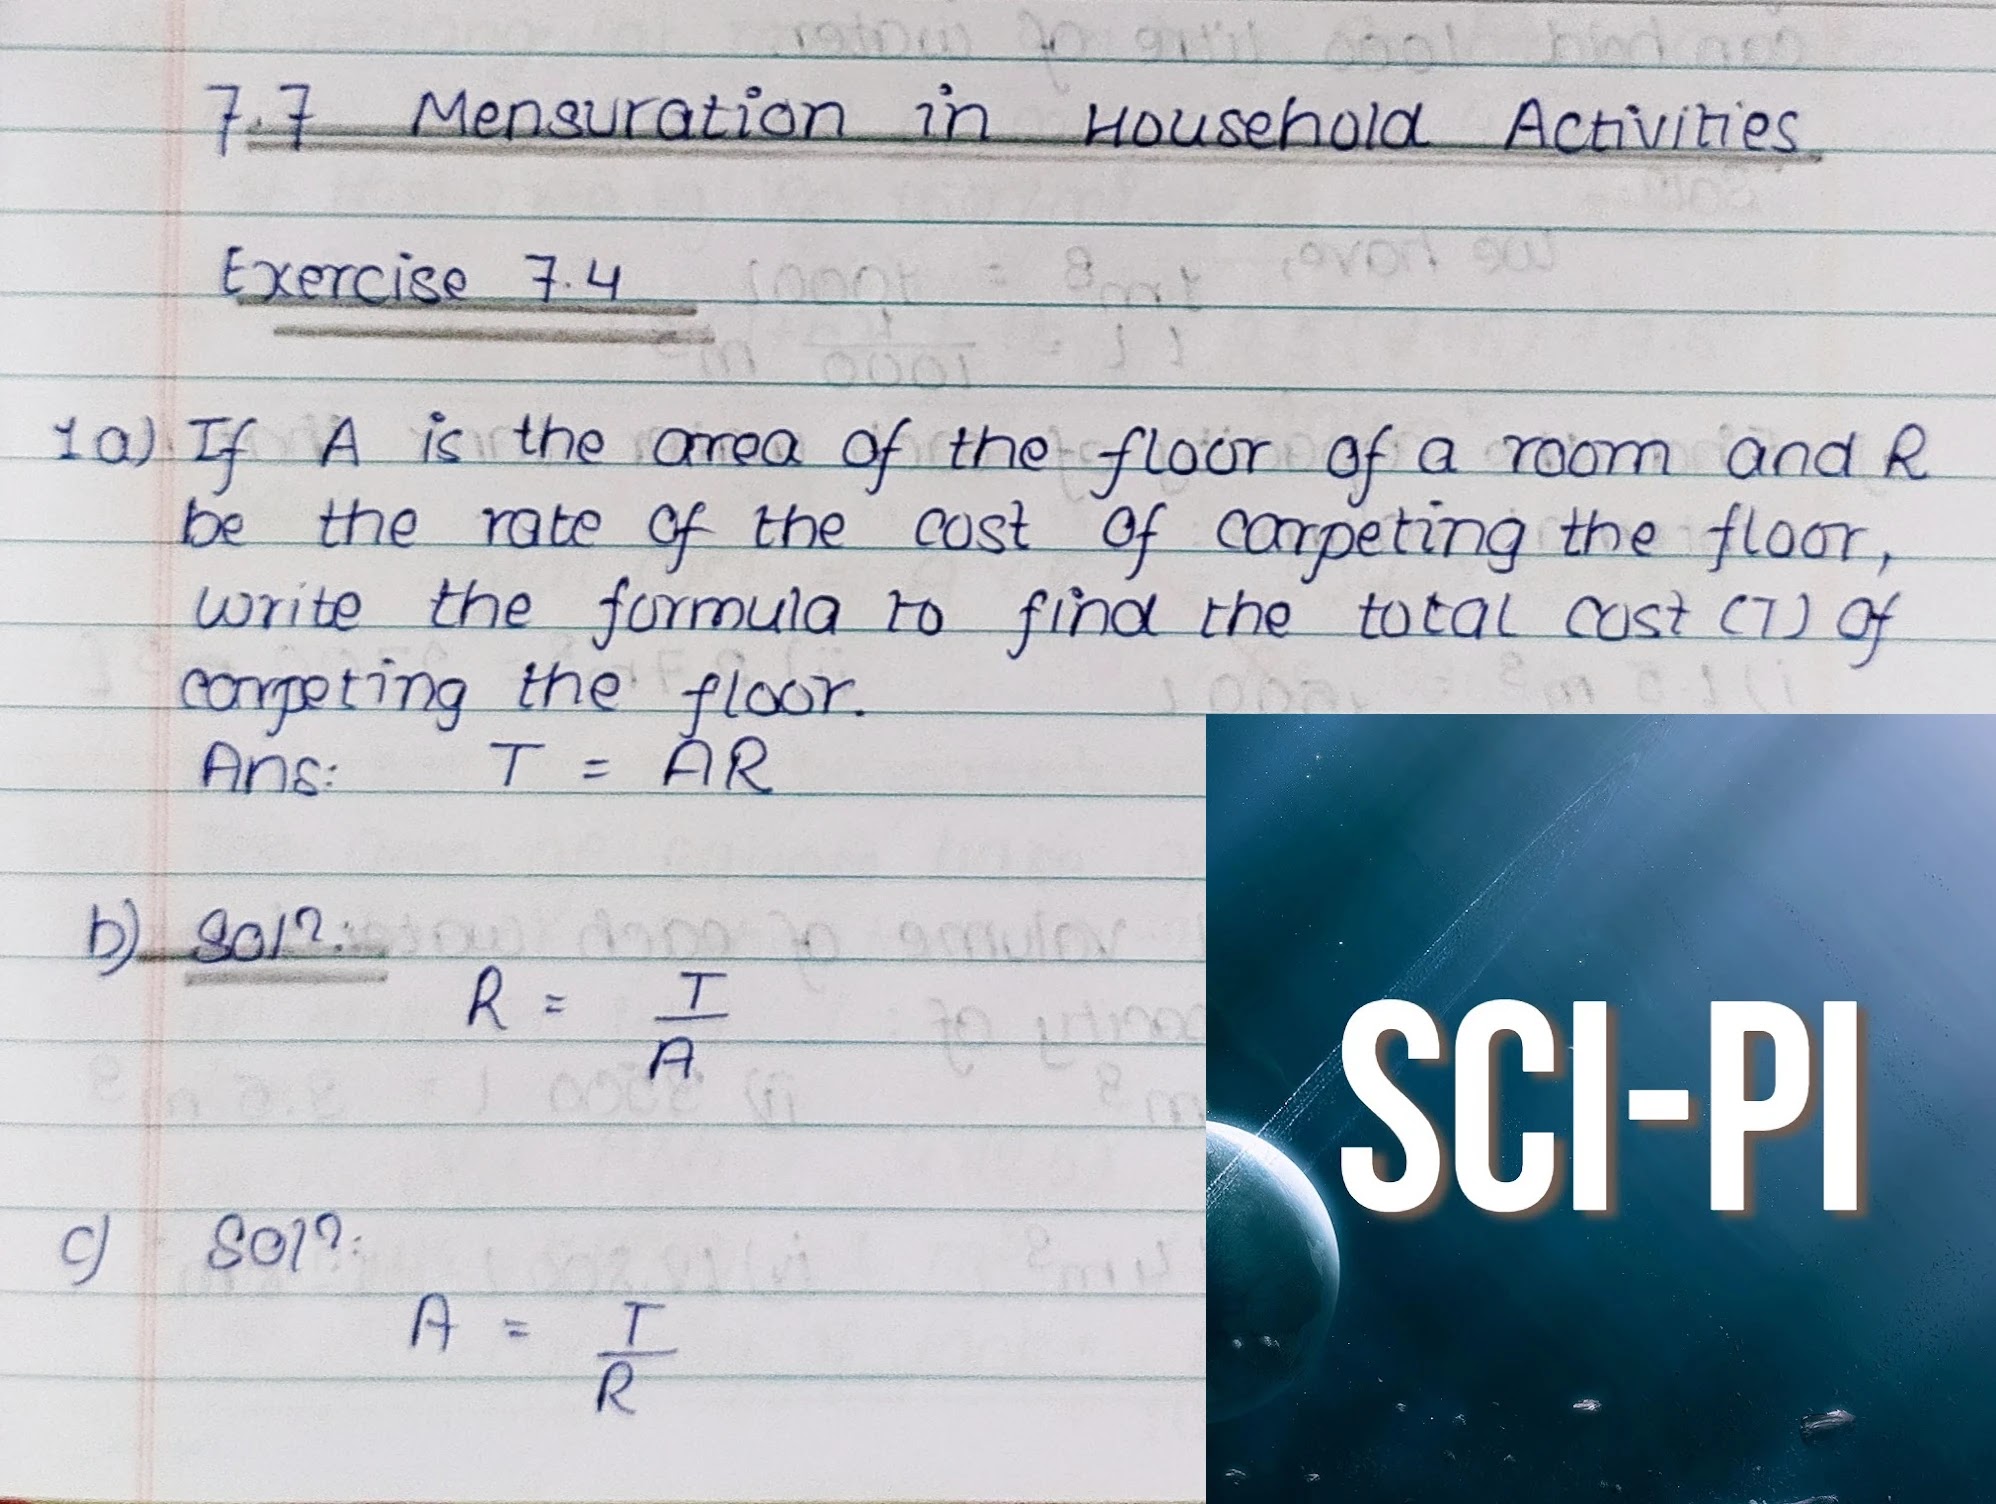 7.7 Mensuration in Household Activities
Exercise 7.4
1a) If A is the area of the floor of a room and R
be the rate of the cost of carpeting the floor,
write the formula to find the total cost (T) of
carpeting the floor.
Ans: T = AR
b) Solⁿ:
R = T/A
c) Solⁿ:
A = T/R
SCI-PI